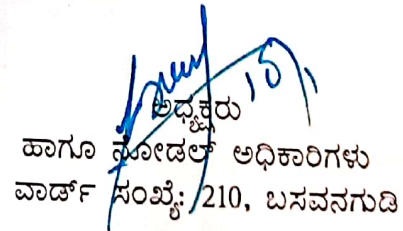 ಅಧ್ಯಕ್ಷರು
ಹಾಗೂ ನೋಡಲ್ ಅಧಿಕಾರಿಗಳು
ವಾರ್ಡ್ ಸಂಖ್ಯೆ: 210, ಬಸವನಗುಡಿ